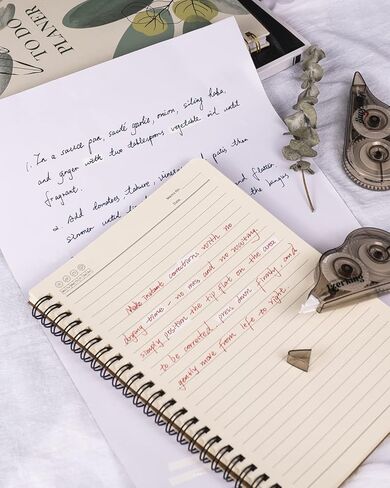 TO DO
PLANER
1. In a sauce pan, sauté garlic, onion, siling haba,
and ginger with two tablespoons vegetable oil until
fragrant.
2. Add tomatoes,
simmer until
Make instant corrections with no
drying time - no mess and no rewriting
simply position the tip flat on the area
to be corrected, press down firmly, and
gently move from left to right